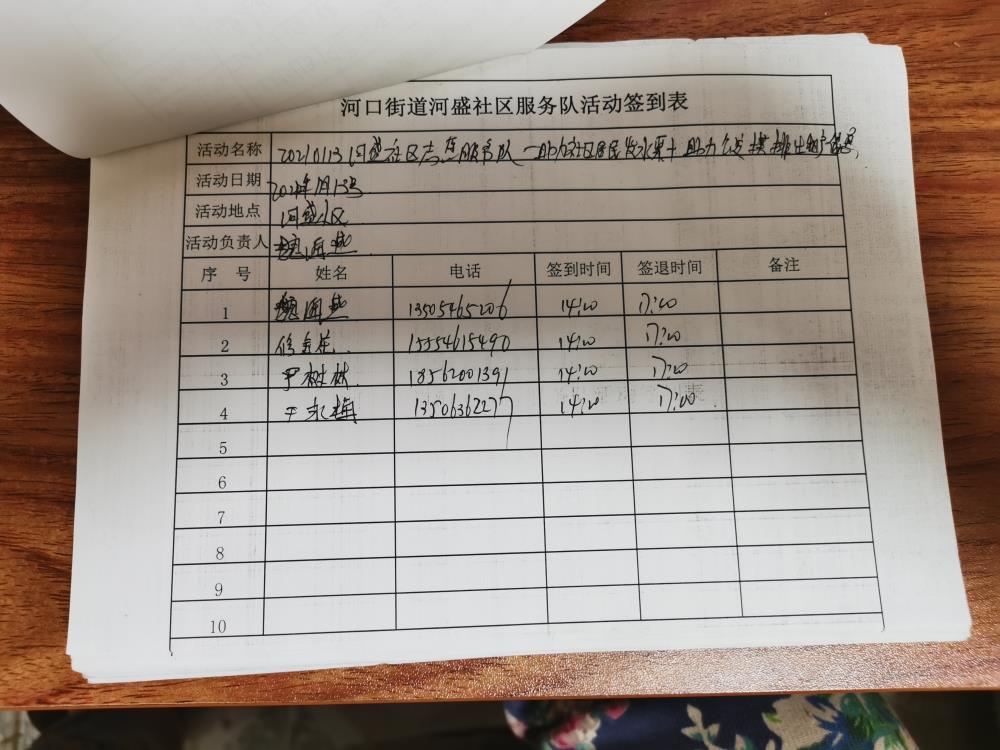 河口街道河盛社区服务队活动签到表
活动名称 20210113河盛社区志愿服务队
活动日期 2021年1月13号
活动地点 河盛小区
活动负责人
序 号 姓名 电话 签到时间 签退时间 备注
1 13505465206 14:00 17:00
2 15554615490 14:00 17:00
3 于树林 18562001391 14:00 17:00
4 于永梅 13506362277 14:00 17:00
5
6
7
8
9
10